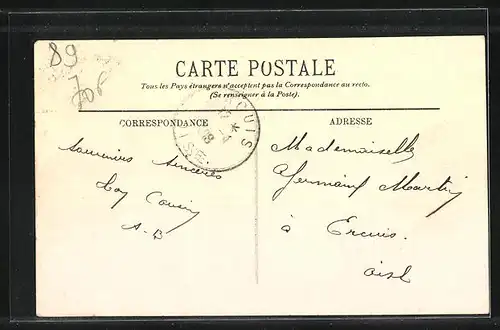 89
70f
CARTE POSTALE
Tous les Pays étrangers n'acceptent pas la Correspondance au recto.
(Se renseigner à la Poste).
CORRESPONDANCE
ADRESSE
Souvenirs sincères
A. B
Mademoiselle
Germaine Martin
à Ercuis.
oise